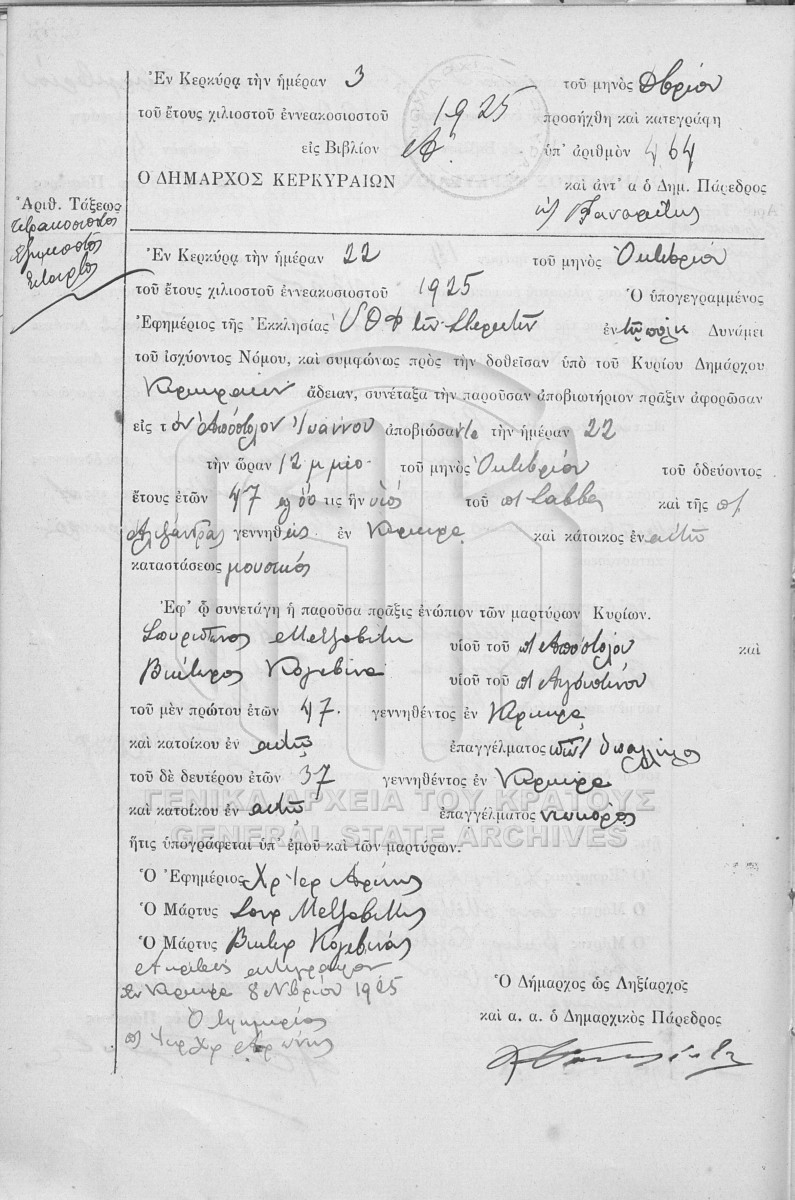 Ἐν Κερκύρᾳ τὴν ἡμέραν 3 τοῦ μηνὸς Δβρίου
τοῦ ἔτους χιλιοστοῦ ἐννεακοσιοστοῦ 1925 προσήχθη καὶ κατεγράφη
εἰς Βιβλίον Α! ὑπ' ἀριθμὸν 464
Ο ΔΗΜΑΡΧΟΣ ΚΕΡΚΥΡΑΙΩΝ καὶ ἀντ' α ὁ Δημ. Πάρεδρος
Ἀριθ. Τάξεως
τετρακοσιοστὸς
ἑξηκοστὸς
τέταρτος
Ἐν Κερκύρᾳ τὴν ἡμέραν 22 τοῦ μηνὸς Ὀκτωβρίου
τοῦ ἔτους χιλιοστοῦ ἐννεακοσιοστοῦ 1925 Ὁ ὑπογεγραμμένος
Ἐφημέριος τῆς Ἐκκλησίας ΥΘΦ τῶν ἐν τῇ πόλει Δυνάμει
τοῦ ἰσχύοντος Νόμου, καὶ συμφώνως πρὸς τὴν δοθεῖσαν ὑπὸ τοῦ Κυρίου Δημάρχου
Κερκυραίων ἄδειαν, συνέταξα τὴν παροῦσαν ἀποβιωτήριον πρᾶξιν ἀφορῶσαν
εἰς τὸν Ἀπόστολον Ἰωάννου ἀποβιώσαντα τὴν ἡμέραν 22
τὴν ὥραν 12 μ μεσ. τοῦ μηνὸς Ὀκτωβρίου τοῦ ὁδεύοντος
ἔτους ἐτῶν 47 ὅς τις ἦν υἱὸς τοῦ π/ Σάββα καὶ τῆς π/
Ἀλεξάνδρας γεννηθεὶς ἐν Κερκύρᾳ καὶ κάτοικος ἐν αὐτῇ
καταστάσεως μουσικός
Ἐφ' ᾧ συνετάγη ἡ παροῦσα πρᾶξις ἐνώπιον τῶν μαρτύρων Κυρίων.
Σπυρίδωνος Μεταξοβίτη υἱοῦ τοῦ π/ Ἀποστόλου καὶ
Βίκτωρος Κολεβίνα υἱοῦ τοῦ π/ Αὐγουστίνου
τοῦ μὲν πρώτου ἐτῶν 47. γεννηθέντος ἐν Κερκύρᾳ
καὶ κατοίκου ἐν αὐτῇ ἐπαγγέλματος ὑπαλλήλου
τοῦ δὲ δευτέρου ἐτῶν 37 γεννηθέντος ἐν Κερκύρᾳ
καὶ κατοίκου ἐν αὐτῇ ἐπαγγέλματος νεωκόρος
ΓΕΝΙΚΑ ΑΡΧΕΙΑ ΤΟΥ ΚΡΑΤΟΥΣ
GENERAL STATE ARCHIVES
ἥτις ὑπογράφεται ὑπ' ἐμοῦ καὶ τῶν μαρτύρων.
Ὁ Ἐφημέριος Χρ Ἱερ
Ὁ Μάρτυς Σπυρ
Ὁ Μάρτυς Βίκτωρ Κολεβίνας
Ἀκριβὲς ἀντίγραφον
Ἐν Κερκύρᾳ 8 Νβρίου 1925
Ὁ Ἐφημέριος
Ὁ Δήμαρχος ὡς Ληξίαρχος
καὶ α. α. ὁ Δημαρχικὸς Πάρεδρος